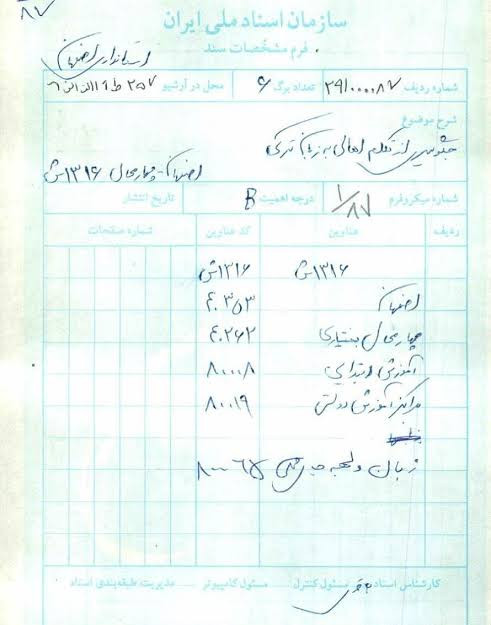 ۸۷
سازمان اسناد ملی ایران
فرم مشخصات سند
استانداری اصفهان
شماره ردیف ۲۹۱۰۰۰۰۸۷ تعداد برگ ۶ محل در آرشیو
شرح موضوع
جلوگیری از تکلم اهالی به زبان ترکی
اصفهان - چهارمحال ۱۳۱۶ش
شماره میکروفرم ۱/۸۷ درجه اهمیت B تاریخ انتشار
ردیف عناوین کد عناوین شماره صفحات
۱۳۱۶ش ۱۳۱۶ش
اصفهان ۴۰۳۵۳
چهارمحال بختیاری ۴۰۲۶۲
آموزش ابتدایی ۸۰۰۰۸
مراکز آموزش دولتی ۸۰۰۱۹
زبان و لهجه های محلی
کارشناس اسناد مسئول کنترل مسئول کامپیوتر مدیریت طبقه‌بندی اسناد